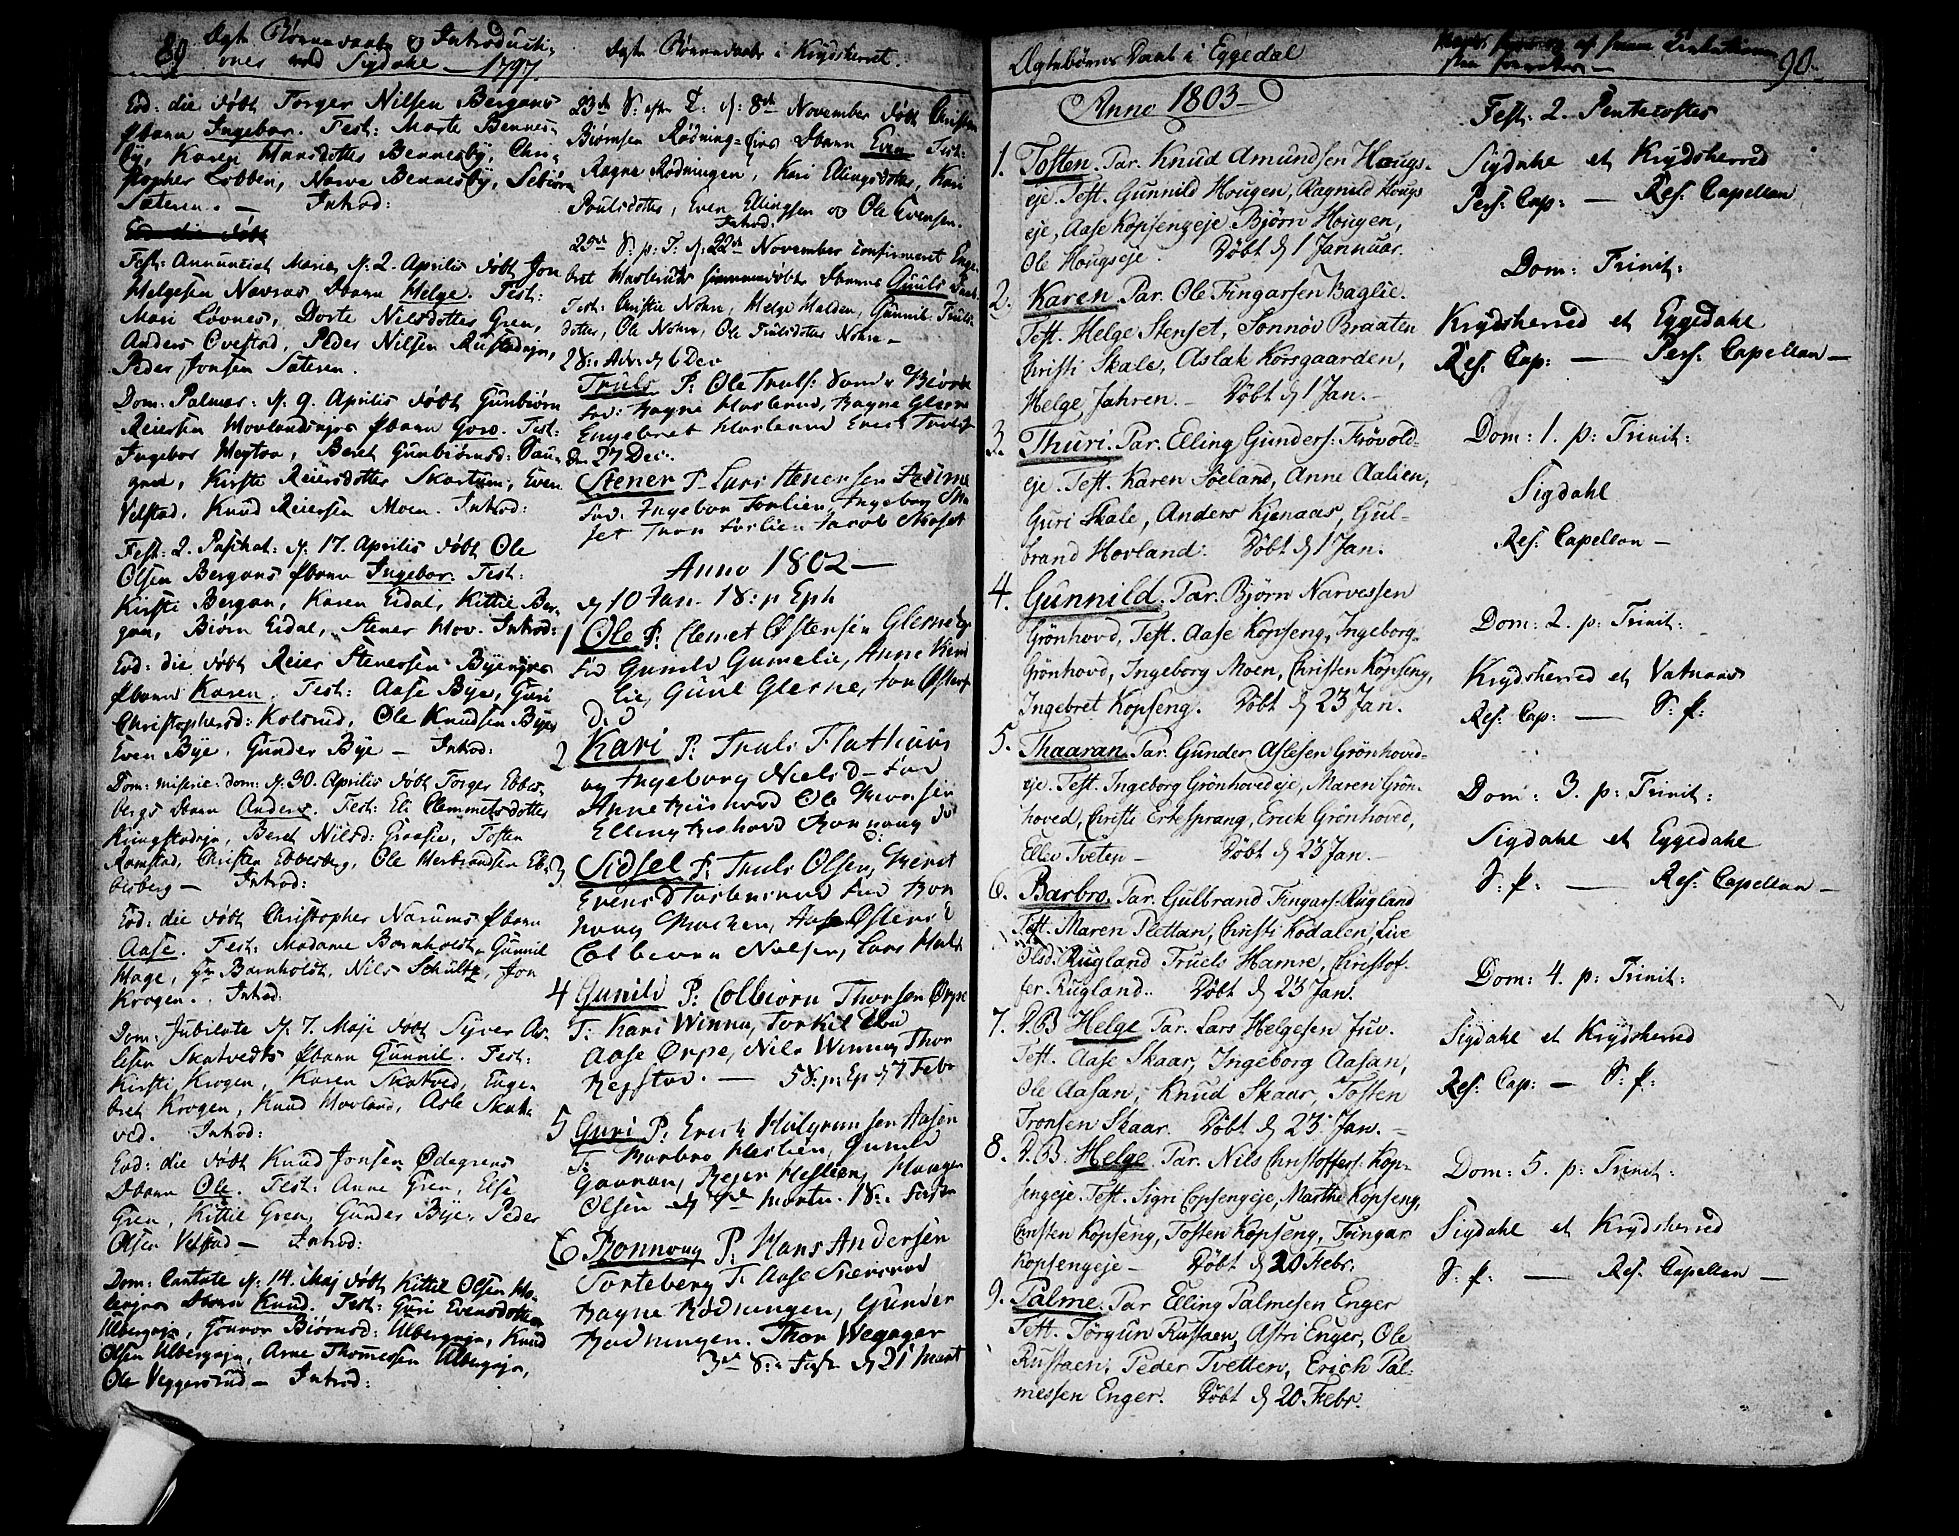 89 Ægte Børnedaab og Introducti-
oner ved Sigdahl — 1797.
Eod: die döbt Torger Nilsen Bergans
Pbarn Ingebor. Test: Marte Bennes-
by, Karen Hansdotter Bennesby, Chri-
stopher Lobben, Narve Bennesby,
Sateren. — Introd:
Eod: die döbt
Fest: Annunciat: Mariæ, d: 2. Aprilis döbt Jon
Helgesen Navras Dbarn Helge. Test:
Mari Løvnes, Dorte Nilsdotter Gren,
Anders Evestad, Peder Nilsen
Peder Jonsen Sateren.
Dom: Palmar: d: 9. Aprilis döbt Gunbiörn
Reiersen Hovlandsejes Pbarn Goro. Test:
Ingebor, Beret Gunbiörnsd:
Kirsti Reiersdotter Skartum, Even
Velstad, Knud Reiersen Moen. Introd:
Fest: 2. Paschat: d: 17. Aprilis döbt Ole
Olsen Bergans Pbarn Ingebor. Test:
Kirsti Bergan, Karen Eidal, Kittil Ber-
gan, Biörn Eidal, Stener Hov. Introd:
Eod: die döbt Reier Stenersen Byeejes
Pbarn Karen. Test: Aase Bye, Guri
Christophersd: Kolsrud, Ole Knudsen Bye,
Even Bye, Gunder Bye — Introd:
Dom: miseric: dom: d: 30. Aprilis döbt Torger Ebbes-
bergs Dbarn Anders. Test: Eli Clemmetsdotter
Beret Nilsd: Graasli, Tosten
Ramstad, Christen Ebbesberg, Ole Herbrandsen Eb-
besberg — Introd:
Eod: die döbt Christopher Narums Pbarn
Aase. Test: Madame Barnholdt, Gunnil
Hage, Hr Barnholdt, Nils Schültz, Jon
Krogen. Introd:
Dom: Jubilate d: 7. Maji döbt Syver As-
lesen Skatvedts Pbarn Gunnil. Test:
Kirsti Krogen, Karen Skatved, Enge-
bret Krogen, Knud Hovland, Asle Skat-
ved. Introd:
Eod: die döbt Knud Jonsen Ödegrens
Dbarn Ole. Test: Anne Gren, Else
Gren, Kittil Gren, Gunder Bye, Peder
Olsen Velstad — Introd:
Dom: Cantate d: 14. Maj döbt Kittil Olsen
Dbarn Knud. Test: Guri Evensdotter
Ulbergeje, Gonvor Biörnsd: Ulbergeje, Knud
Olsen Ulbergeje, Arne Thomessen Ulbergeje,
Ole Veggersrud — Introd:
Ægte Børnedaab i Krydsherret.
23de S: efter T: d: 8de November döbt Christen
Biörnsen Rödning-ejes Dbarn Even Test:
Ragne Rödningen, Kari Ellingsdotter, Kari
Poulsdotter, Even Ellingsen og Ole Evensen.
Introd:
25de S: p: T: d: 22de November confirmeret Enge-
bret Hasleruds hiemmedöbte Dbarn
Test: Christie Nohre, Helge Halden, Gunnil Truls-
dotter, Ole Nohre, Ole Trulsdotter Nohre —
2 S: Adv: d 6 Dec
Truls P: Ole Truls:
Fad: Ragne Haslerud, Ragne Glesne
Engebret Haslerud Erich
Den 27 Dec:
Stener P: Lars Stenersen
Fad: Ingebor Torlien, Ingeborg
Tron Torlien Jacob
Anno 1802 —
d 10 Jan. 1 S: p Eph
1 Ole P: Clemet Ostensen Glesne
Fad Gunild Gumelie, Anne
lie, Guul Glesne,
Do
2 Kari P: Truls Flathuus
og Ingeborg Nielsd — Fad
Anne Ole
Elling Ronnoug Do
3 Sidsel P: Truls Olsen,
Evensd Fad
Aase Ostensd
Colbiorn Nielsen, Lars
4 Gunild P: Colbiorn Thorsen Ørpe
T: Kari Winnu, Torkil
Aase Ørpe, Nils Winnu, Thor
— 5 S: p: Ep d 7 Febr
5 Guri P: Erich Aasen
T: Barbro Heslien, Gunild
Reier Heslien,
Olsen d 7de Martii 1 S: i Fasten
6 Ronnoug P: Hans Andersen
Sorteberg T: Aase
Ragne Rodningen, Gunder
Rodningen. Thor Wegager
3de S: i Faste d 21 Mart
Ægtebörns Daab i Eggedal
Anno 1803 —
1. Tosten. Par. Knud Amundsen Hougs-
eje. Test. Gunnild Hougen, Ragnild Hougs-
eje, Aase Kopsengeje Björn Hougen,
Ole Hougseje. Döbt d 1 Januar.
2. Karen. Par. Ole Fingarsen Baglie.
Test. Helge Stenset, Sönnöv Braaten
Christi Skale, Aslak Korsgaarden,
Helge Jahren. — Döbt d 1 Jan. —
3. Thuri. Par. Elling Gunders: Frövold-
eje. Test. Karen Söeland, Anne Aalien,
Guri Skale, Anders Kjenaas, Gul-
brand Hovland. Döbt d 1 Jan.
4. Gunnild. Par. Björn Narvessen
Grönhovd, Test. Aase Kopseng, Ingeborg
Grönhovd, Ingeborg Moen, Christen Kopseng,
Ingebret Kopseng. Döbt d 23 Jan.
5. Thaaran. Par. Gunder Aslesen Grönhovd-
eje. Test. Ingeborg Grönhovedeje, Maren Grön-
hoved, Christi Erkesprang, Erick Grönhoved,
Ellev Tveten — Döbt d 23 Jan. —
6. Barbro. Par. Gulbrand Fingars: Rugland
Test. Maren Plettan, Christi Kodalen, Live
Olsd: Rugland Truels Hamre, Christof-
fer Rugland. Döbt d 23 Jan.
7. D.B. Helge Par. Lars Helgesen Juv.
Test. Aase Skaar, Ingeborg Aasan,
Ole Aasan, Knud Skaar, Tosten
Tronsen Skaar. Döbt d 23 Jan. —
8. D.B. Helge. Par. Nils Christoffers: Kop-
sengeje. Test. Sigri Copsengeje, Marthe Kopseng,
Christen Kopseng, Tosten Kopseng, Fingar
Kopsengeje — Döbt d 20 Febr.
9. Palme. Par Elling Palmesen Enger
Test. Törgun Rustaen, Astri Enger, Ole
Rustaen, Peder Tvetten, Erich Pal-
messen Enger. Döbt d 20. Febr.
90.
Fest: 2. Pentecostes
Sigdahl et Krydsherred
Pers: Cap: — Res: Capellan
Dom: Trinit:
Krydsherred et Eggedahl
Res: Cap: — Pers: Capellan —
Dom: 1. p: Trinit:
Sigdahl
Res: Capellan —
Dom: 2. p: Trinit:
Krydsherred et Vatnaas
Res: Cap: — S: p:
Dom: 3. p: Trinit:
Sigdahl et Eggedahl
S: p: — Res: Capellan —
Dom: 4. p: Trinit:
Sigdahl et Krydsherred
Res: Cap: — S: p:
Dom: 5. p: Trinit:
Sigdahl et Krydsherred
S: p: — Res: Capellan —